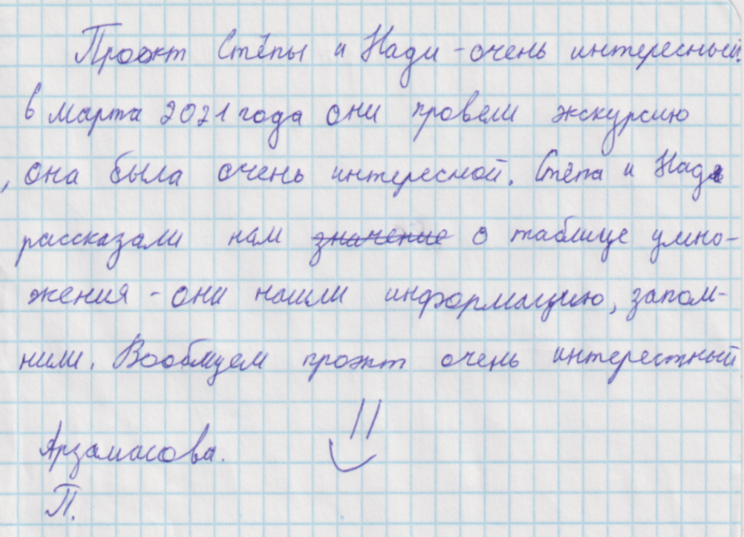 Проэкт Стёпы и Нади - очень интересный.
6 марта 2021 года они провели экскурсию
, она была очень интересной. Стёпа и Надя
рассказали нам ~~значение~~ о таблице умно-
жения - они нашли информацию, запом-
нили. Вообщем проэкт очень интерестный
Арзамасова.
П.